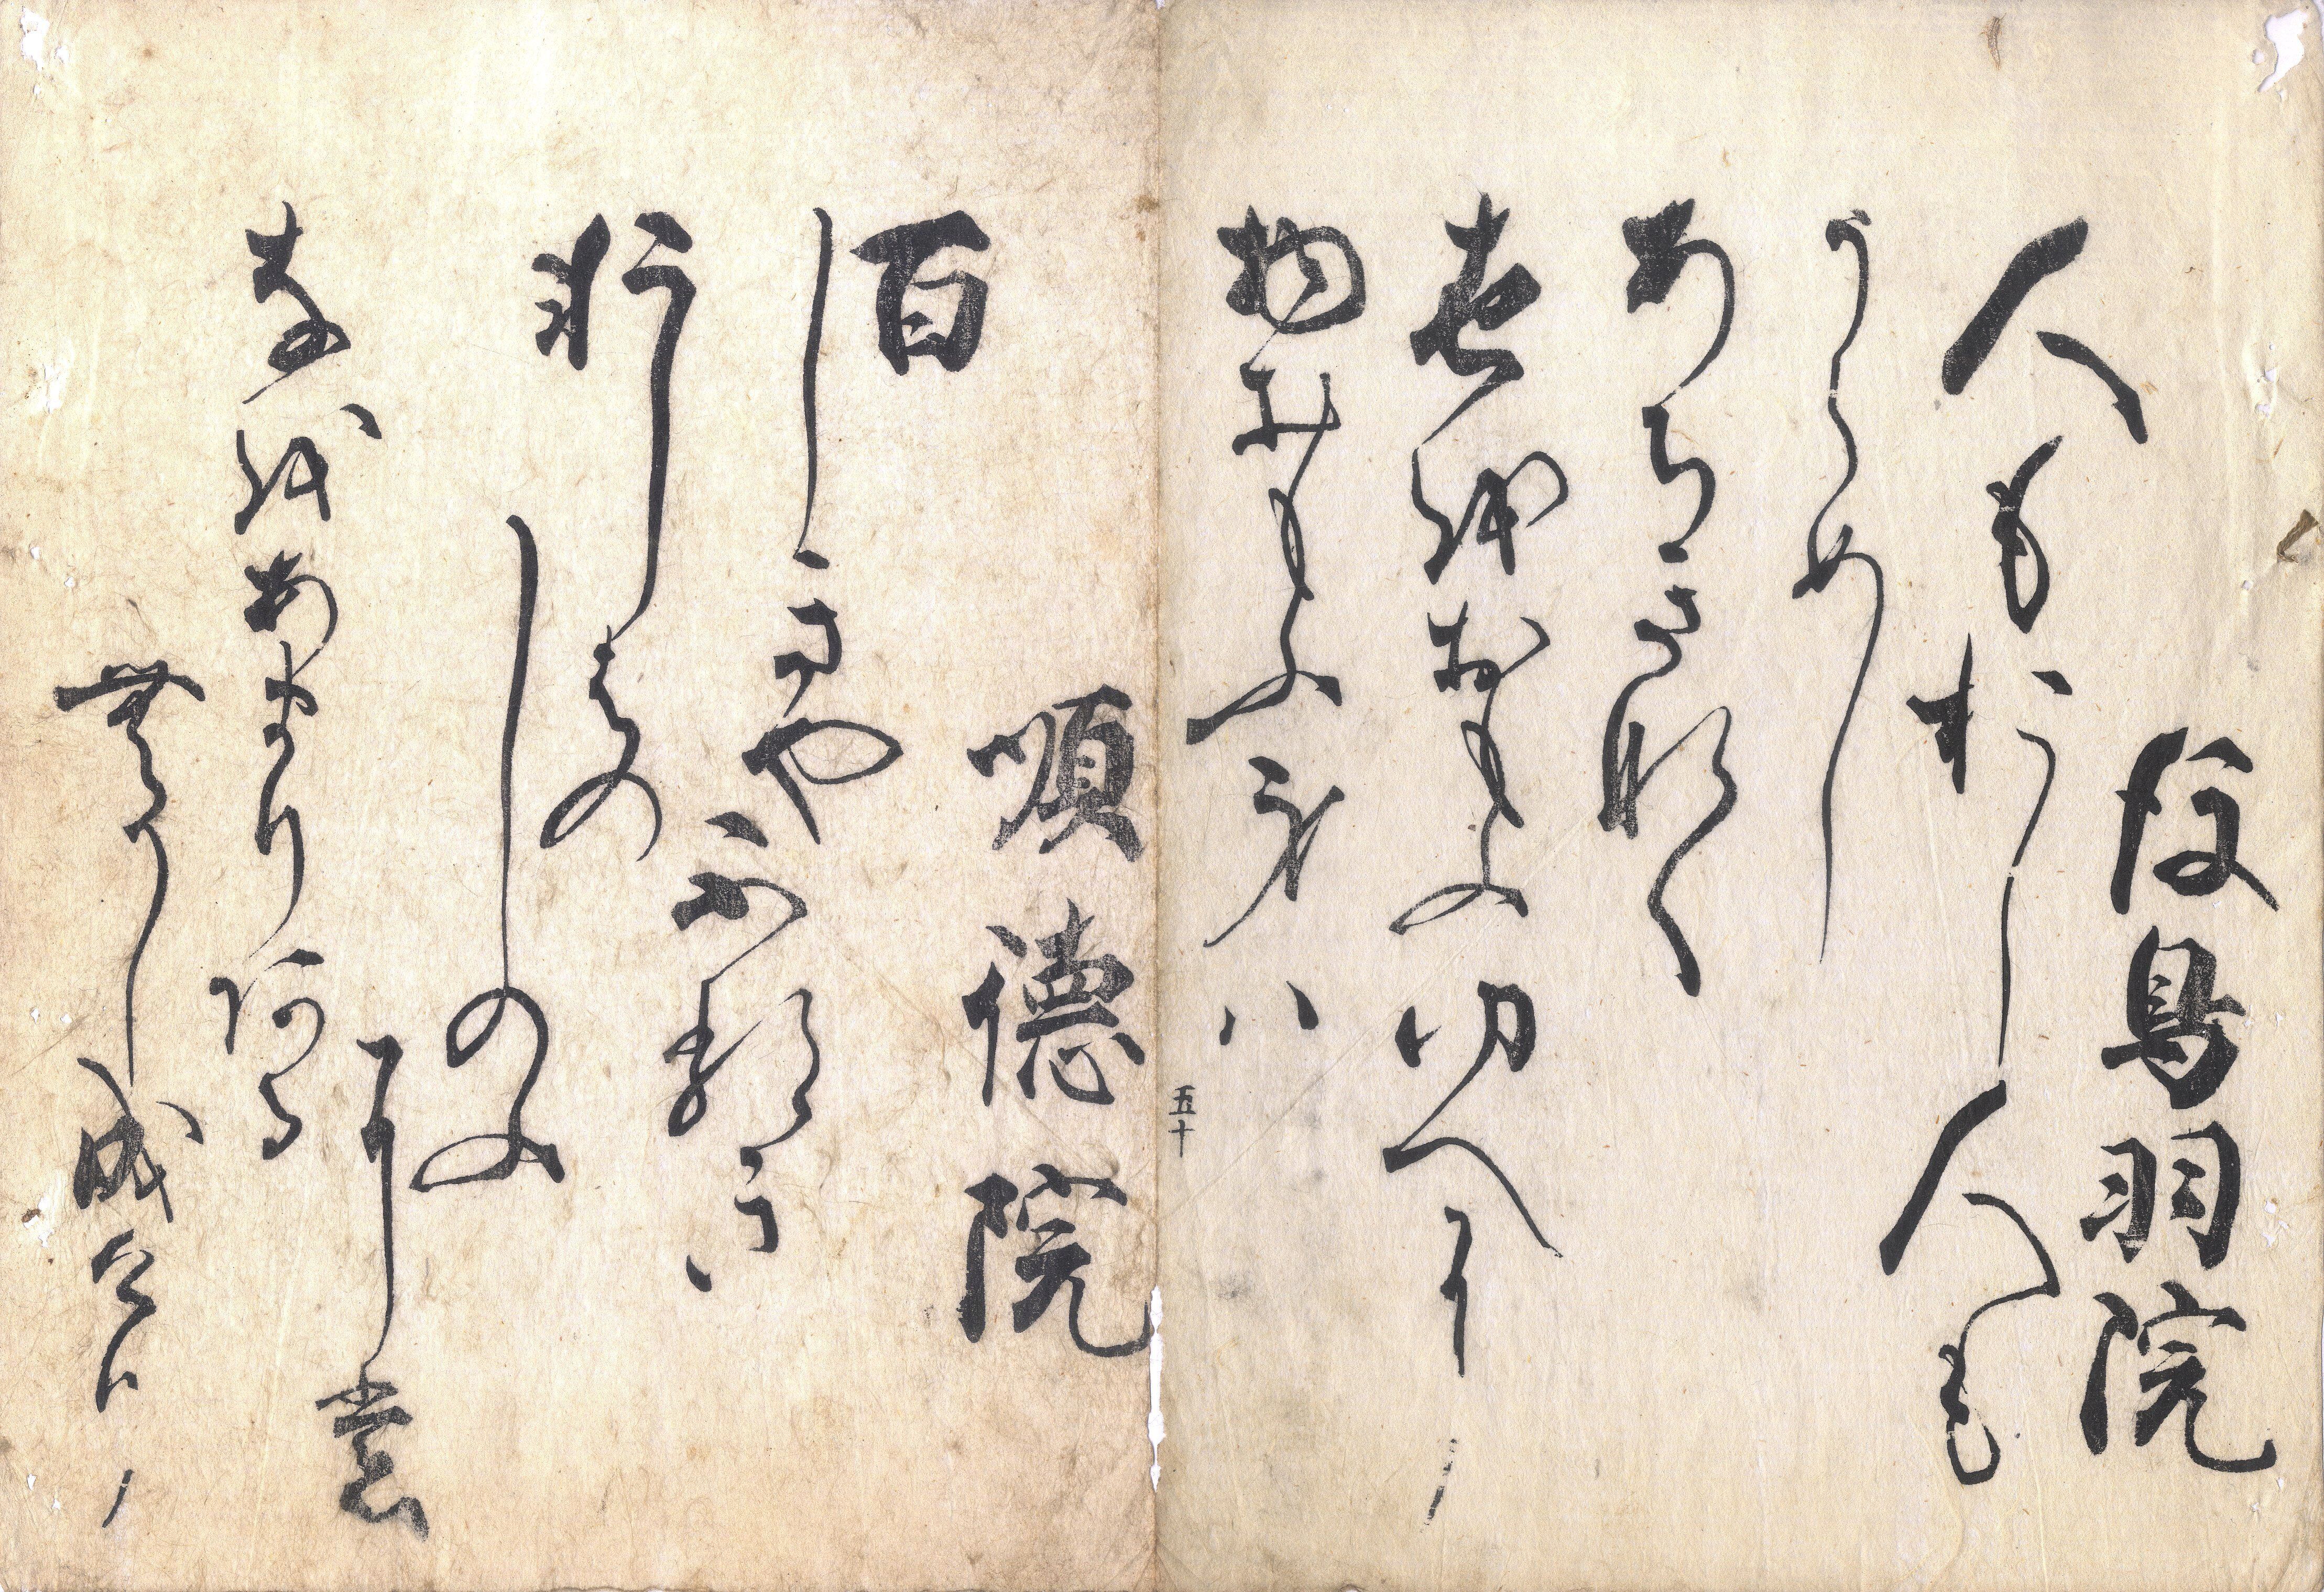 後鳥羽院
人もおし人も
うらめし
あちきなく
世越おもふゆへに
物おもふ身ハ
五十
順徳院
百
しきや不類き
軒はの
しのふ
に裳
奈越あまり阿る
無かし成介り